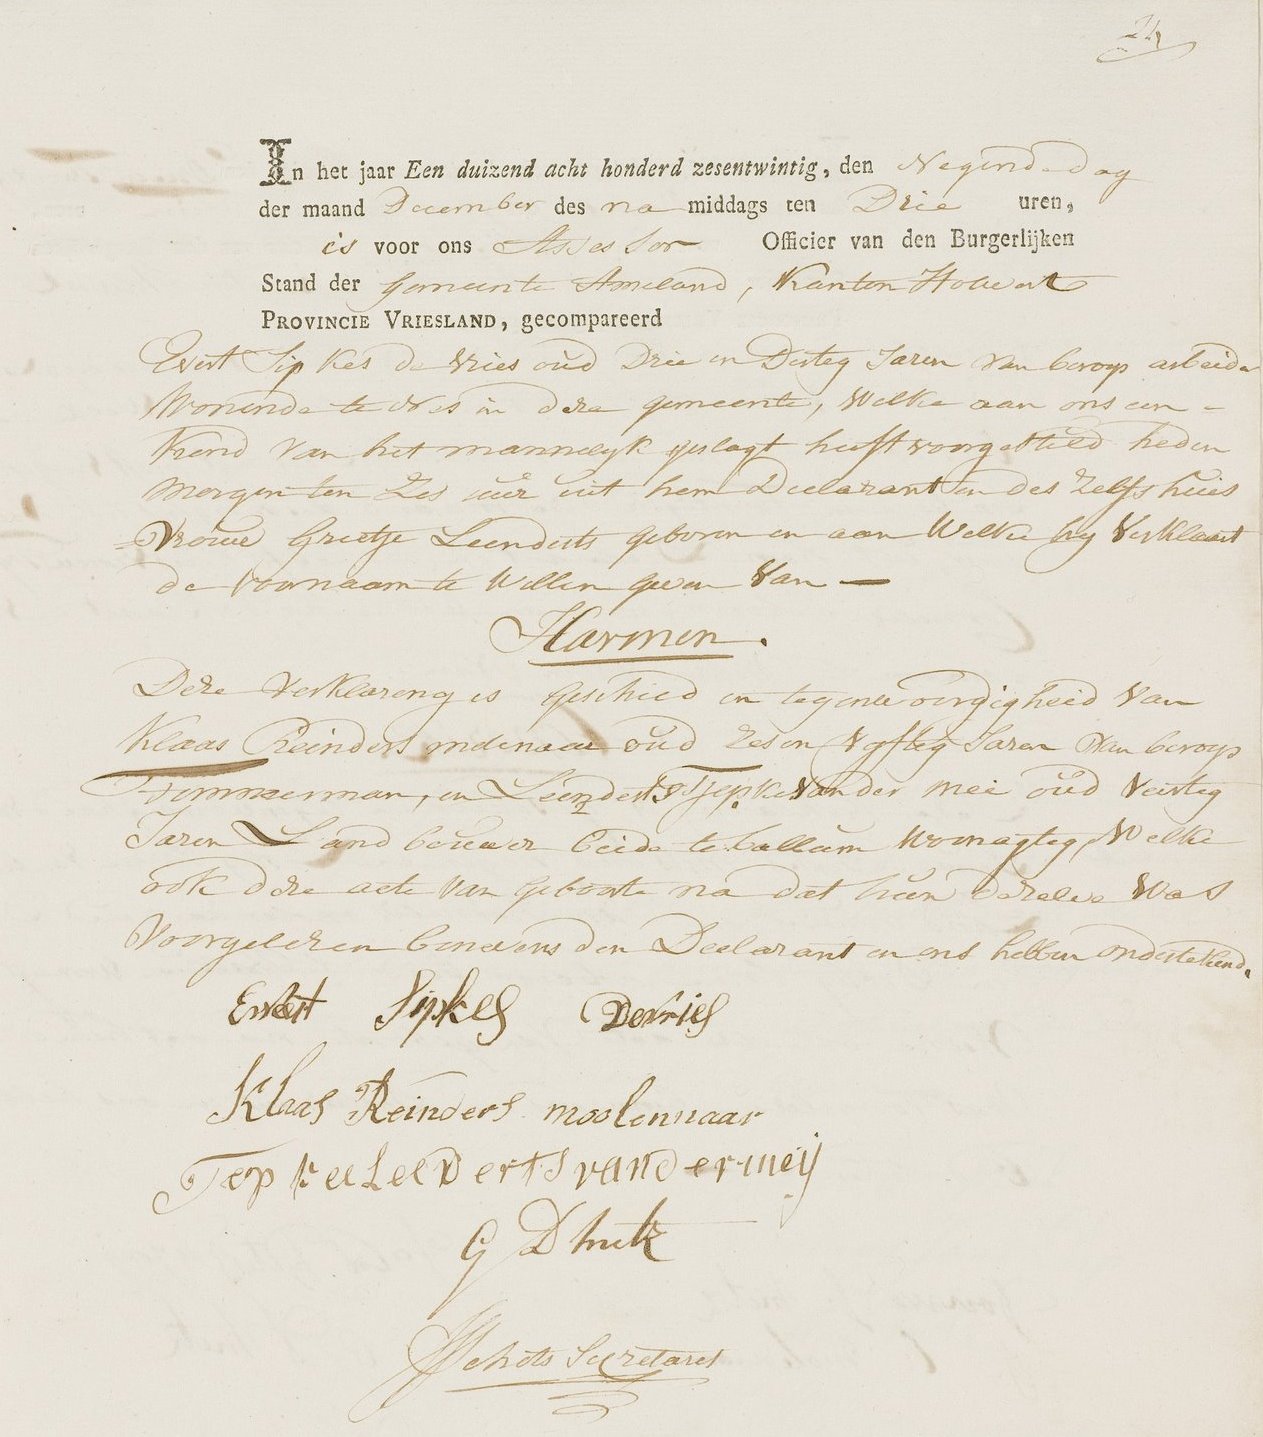 24
In het jaar Een duizend acht honderd zesentwintig, den Negende dag
der maand December des na middags ten Drie uren,
is voor ons Assessor Officier van den Burgerlijken
Stand der Gemeente Ameland, Kanton Holwert
PROVINCIE VRIESLAND, gecompareerd
Evert Sipkes de Vries oud Drie en Dertig Jaren van beroep arbeider
Wonende te Nes in deze gemeente, Welke aan ons een
Kend van het mannelyk geslagt heeft voorgesteld heden
Morgen ten Zes uur uit hem Declarant en des Zelfs huis
Vrouw Grietje Leenderts geboren en aan Welke hy Verklaart
de Voornaam te Willen geven Van —
Harmen.
Deze Verklareng is geschied in tegenwoordigheid Van
Klaas Reinders molenaar oud Zes en Vyfteg Jaren Van beroep
Timmerman, en Leenderts Tjepke Van der Mei oud Veirteg
Jaren Land bouwer beide te ballum Woonagteg, Welke
ook deze acte Van geboorte na dat hun dezelve Was
Voorgelezen benevens den Declarant en ons hebben ondertekend.
Evert Sipkes DeVries
Klaas Reinders moolennaar
Tepkee Leenderts van der meij
G D
Secretaris